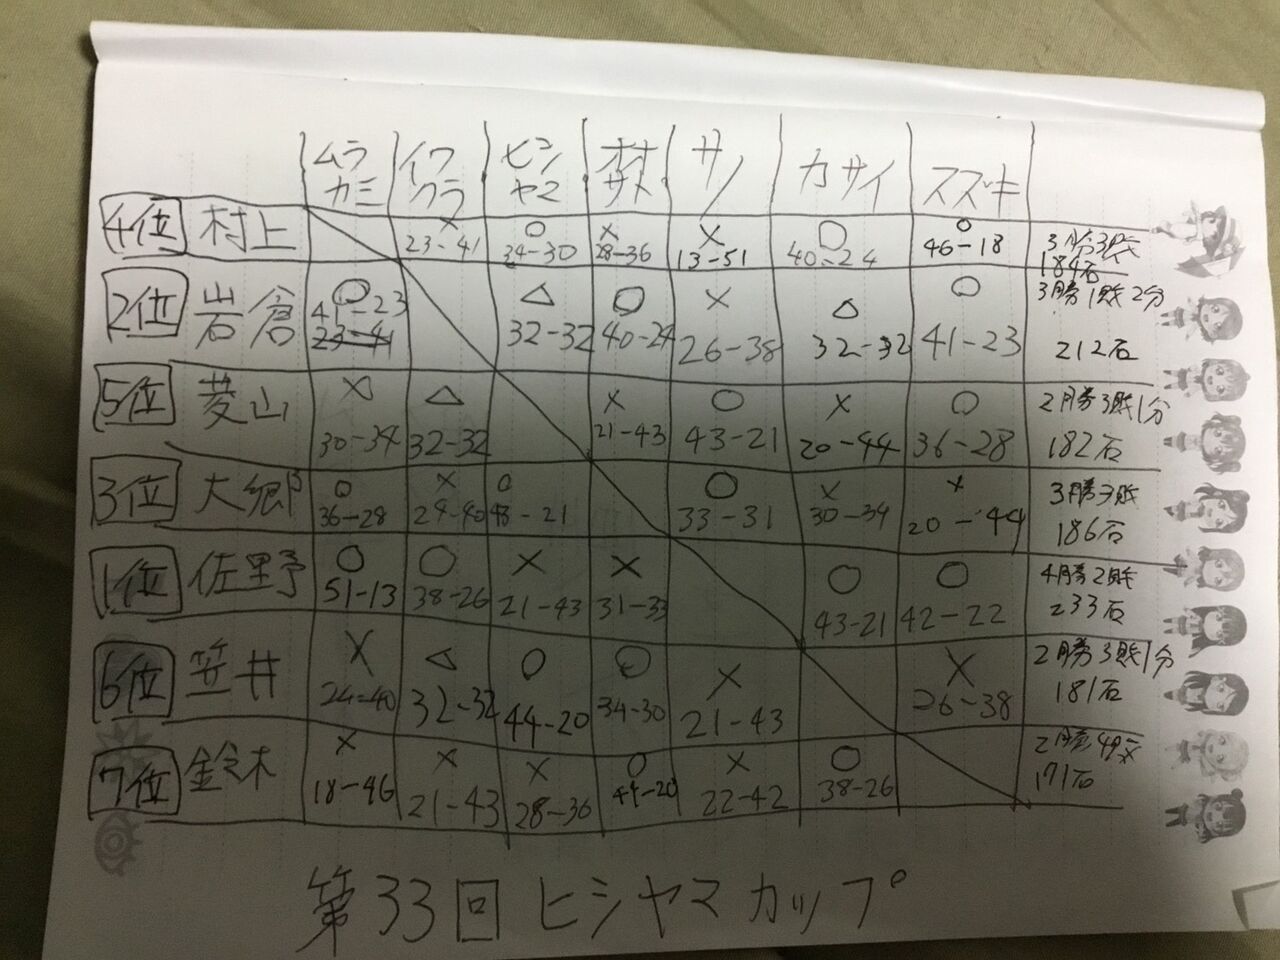 ムラカミ イワクラ ヒシヤマ オオサト サノ カサイ スズキ
4位 村上 × 23-41 ○ 34-30 × 28-36 × 13-51 ○ 40-24 ○ 46-18 3勝3敗 184石
2位 岩倉 ○ 41-23 23-41 △ 32-32 ○ 40-24 × 26-38 △ 32-32 ○ 41-23 3勝1敗2分 212石
5位 菱山 × 30-34 △ 32-32 × 21-43 ○ 43-21 × 20-44 ○ 36-28 2勝3敗1分 182石
3位 大郷 ○ 36-28 × 24-40 ○ 43-21 ○ 33-31 × 30-34 × 20-44 3勝3敗 186石
1位 佐野 ○ 51-13 ○ 38-26 × 21-43 × 31-33 ○ 43-21 ○ 42-22 4勝2敗 233石
6位 笠井 × 24-40 △ 32-32 ○ 44-20 ○ 34-30 × 21-43 × 26-38 2勝3敗1分 181石
7位 鈴木 × 18-46 × 21-43 × 28-36 ○ 44-20 × 22-42 ○ 38-26 2勝4敗 171石
第33回 ヒシヤマカップ